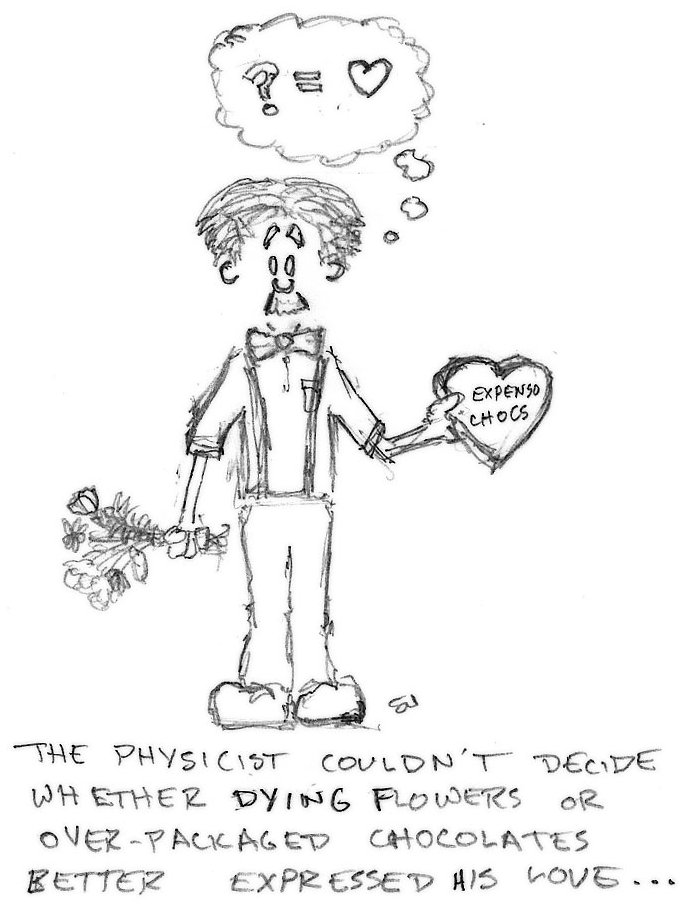 ? = ♡
EXPENSO
CHOCS
THE PHYSICIST COULDN'T DECIDE
WHETHER DYING FLOWERS OR
OVER-PACKAGED CHOCOLATES
BETTER EXPRESSED HIS LOVE...